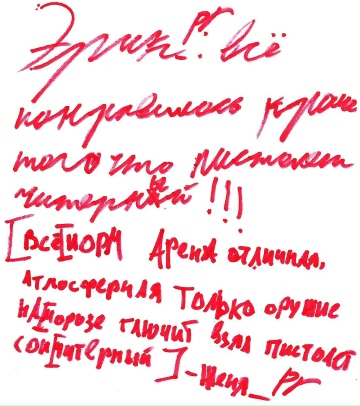 Эрик pr: всё
понравилось кроме
того что пистолет
читерный!!!
[Всё норм Арена отличная,
атмосферная только оружие
на морозе глючит взял пистолет
сон читерный]
-Женя_pr